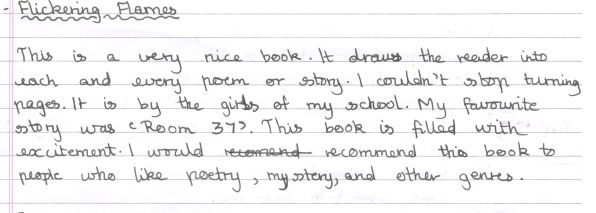 - Flickering Flames
This is a very nice book. It draws the reader into
each and every poem or story. I couldn't stop turning
pages. It is by the girls of my school. My favourite
story was 'Room 37'. This book is filled with
excitement. I would recomend recommend this book to
people who like poetry, mystery, and other genres.